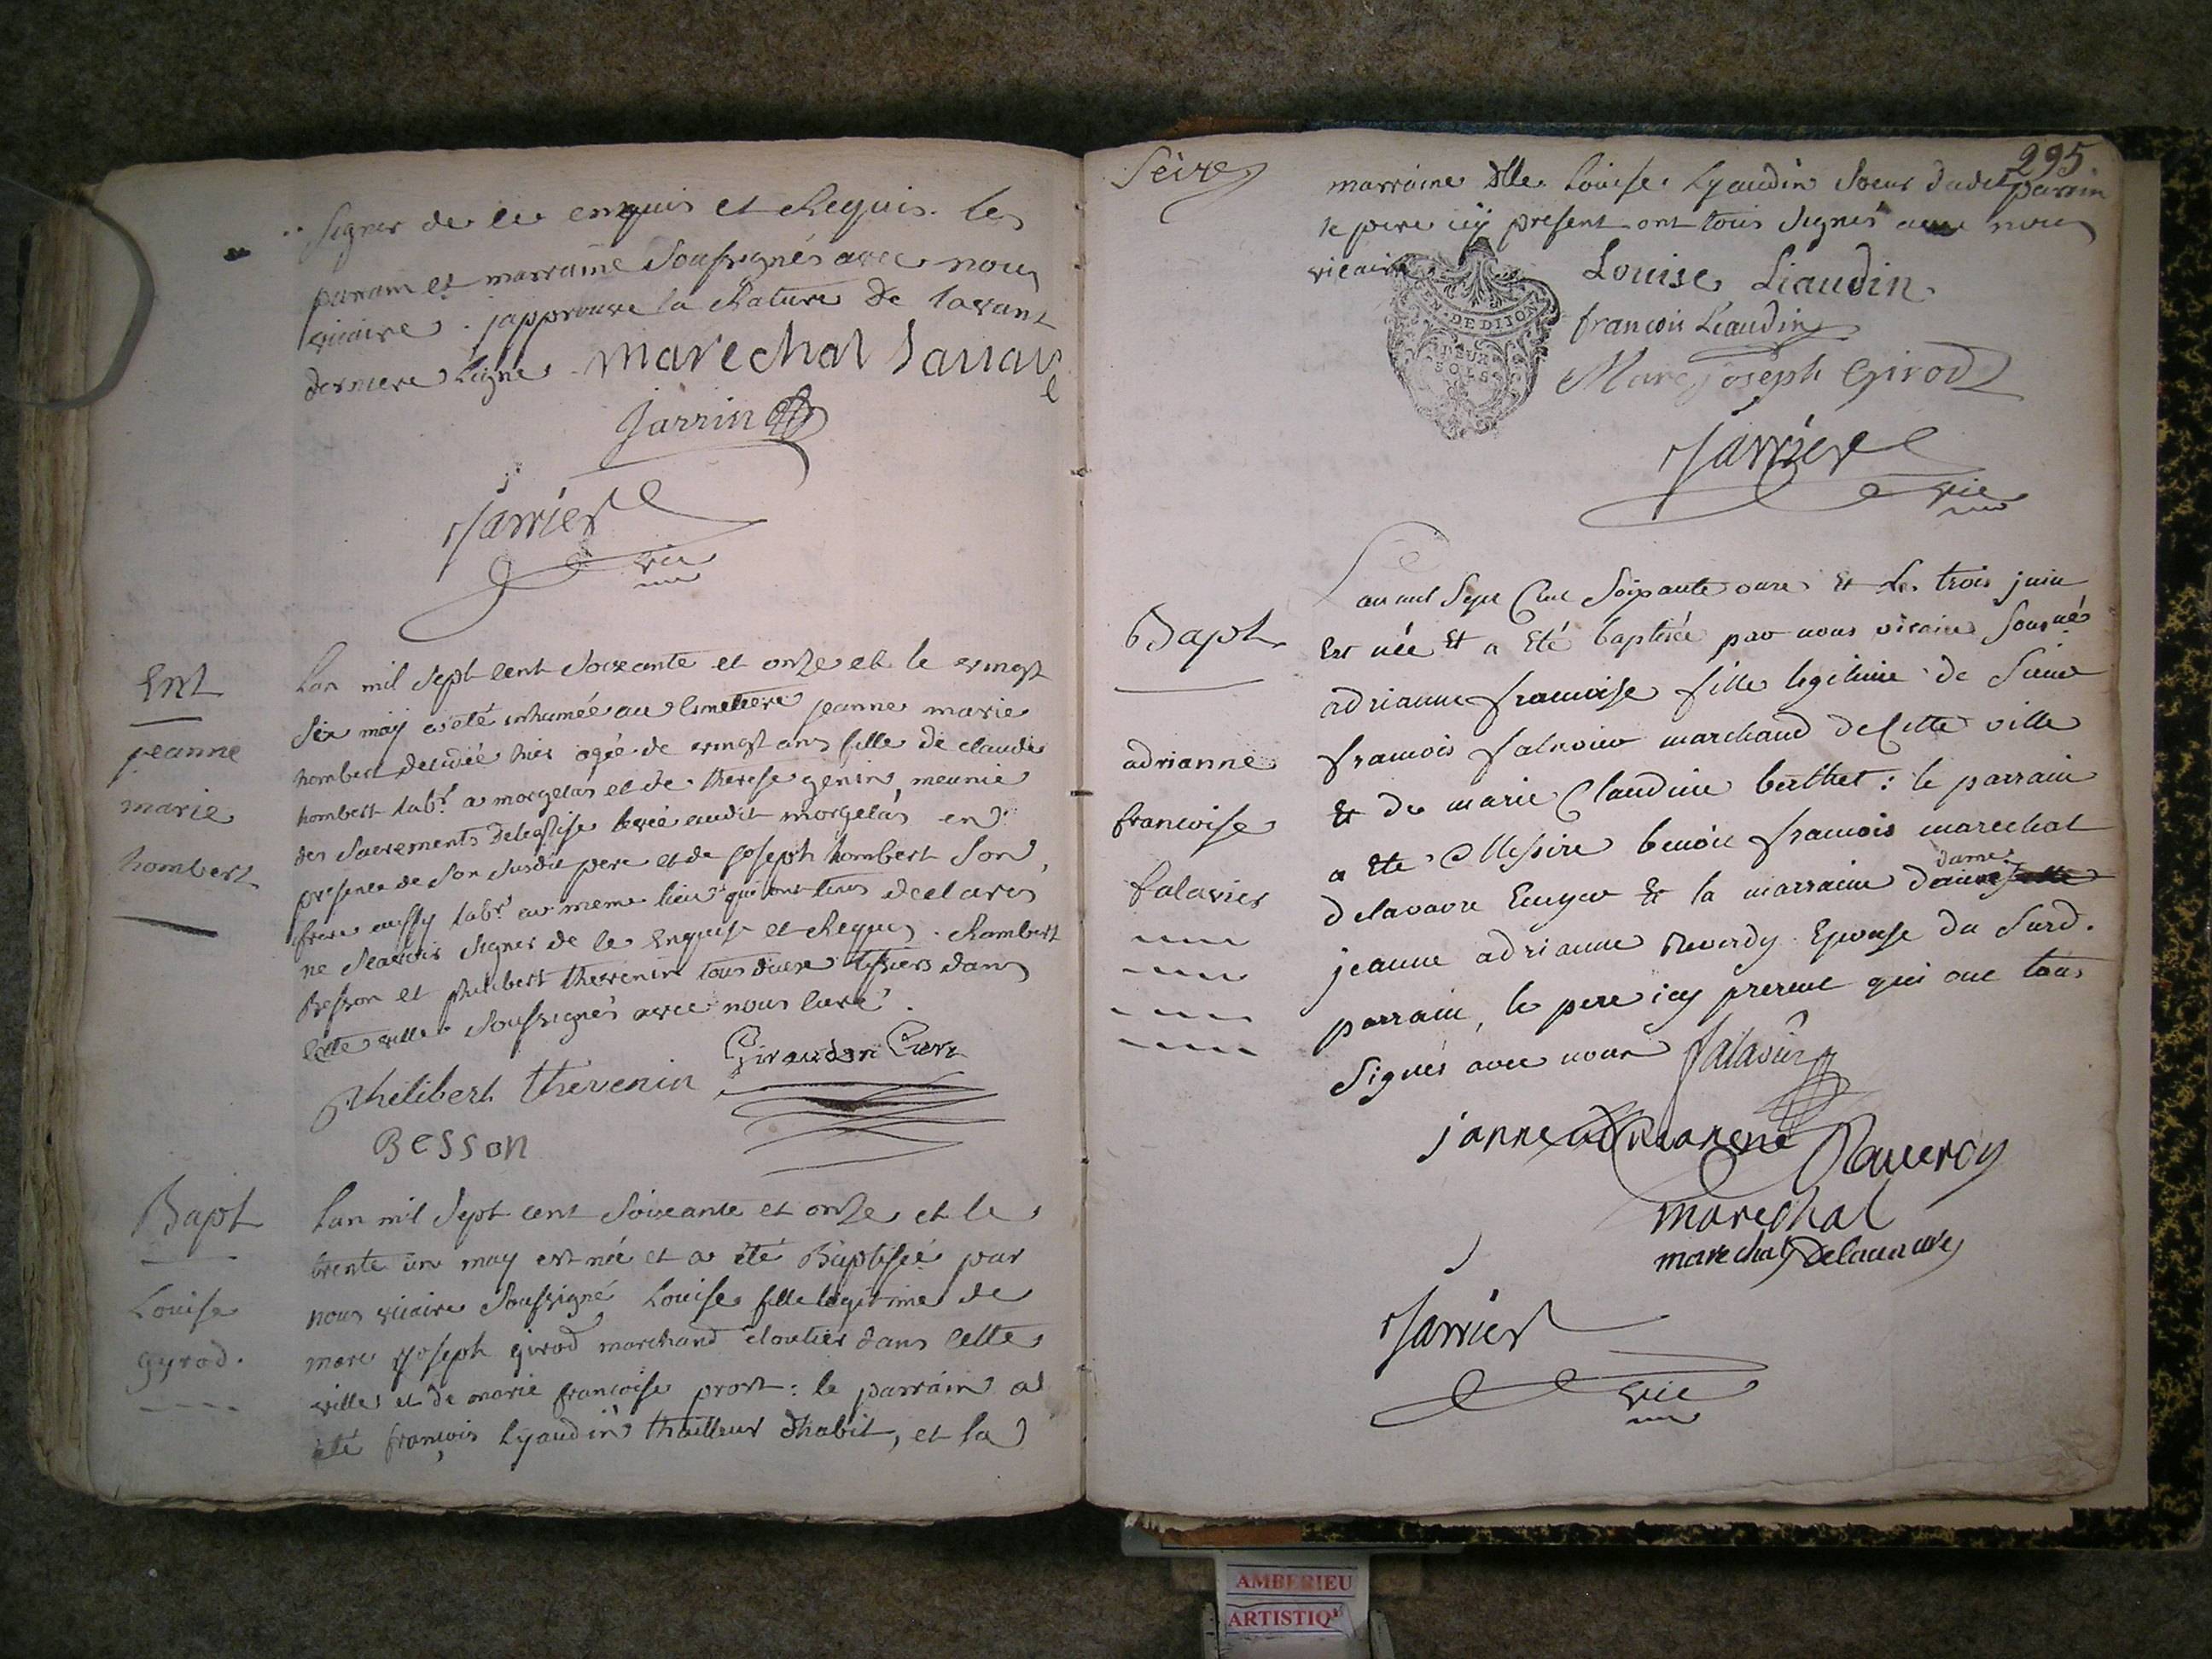 signer de ce enquis et Requis. les
parain et marraine Soussignés avec nous
vicaire. japprouve la Rature de lavant
derniere ligne. marechal
Jarrin
Jarrier
vic
Ent
jeanne
marie
hombert
Lan mil Sept cent Soixante et onze et le vingt
Six may a été inhumée au Cimetiere jeanne marie
hombert decedée hier agée de vingt ans fille de claude
hombert labr. a morgelas et de therese génin, meunie
des Sacrements de leglise levée audit morgelas en
presence de Son Susdit pere et de joseph hombert Son
frere aussy labr. au meme lieu qui ont tous declarés
ne Scavoir Signer de ce Enquis et Requis. Rambert
Besson et philibert thevenin tous deux dans
Cette ville Soussignés avec nous Curé.
philibert thevenin
Giraudon Curé
Besson
Bapt
Louise
gyrod.
Lan mil Sept cent Soixante et onze et le
trente un may est née et a été Baptisée par
nous vicaire Soussigné Louise fille legitime de
marc joseph girod marchand cloutier dans Cette
ville et de marie françoise prost: le parrain a
été françois Lyaudin thailleur dhabit, et la
Seize
295
marraine Dlle Louise Lyaudin Soeur dudit parain
le pere icy present ont tous Signés avec nous
vicaire
GEN. DE DIJON
DEUX
SOLS
Louise Liaudin
françois Liaudin
Marc joseph Girod
Jarrier
vic
Bapt
adrianne
francoise
falavier
Lan mil Sept Cent Soixante onze & Le trois juin
Est née & a Eté baptisée par nous vicaire Sousné
adrianne francoise fille legitime de Sieur
francois falavier marchand de Cette ville
& de marie Claudine berthet: le parrain
a Ete Messire benoit francois marechal
delavavre Ecuyer & la marraine dame
jeanne adrianne Reverdy Epouse du Surd.
parrain, le pere icy present qui ont tous
Signés avec nous falavier
janne
marechal
marechal Delavavre
Jarrier
vic
AMBERIEU
ARTISTIQ